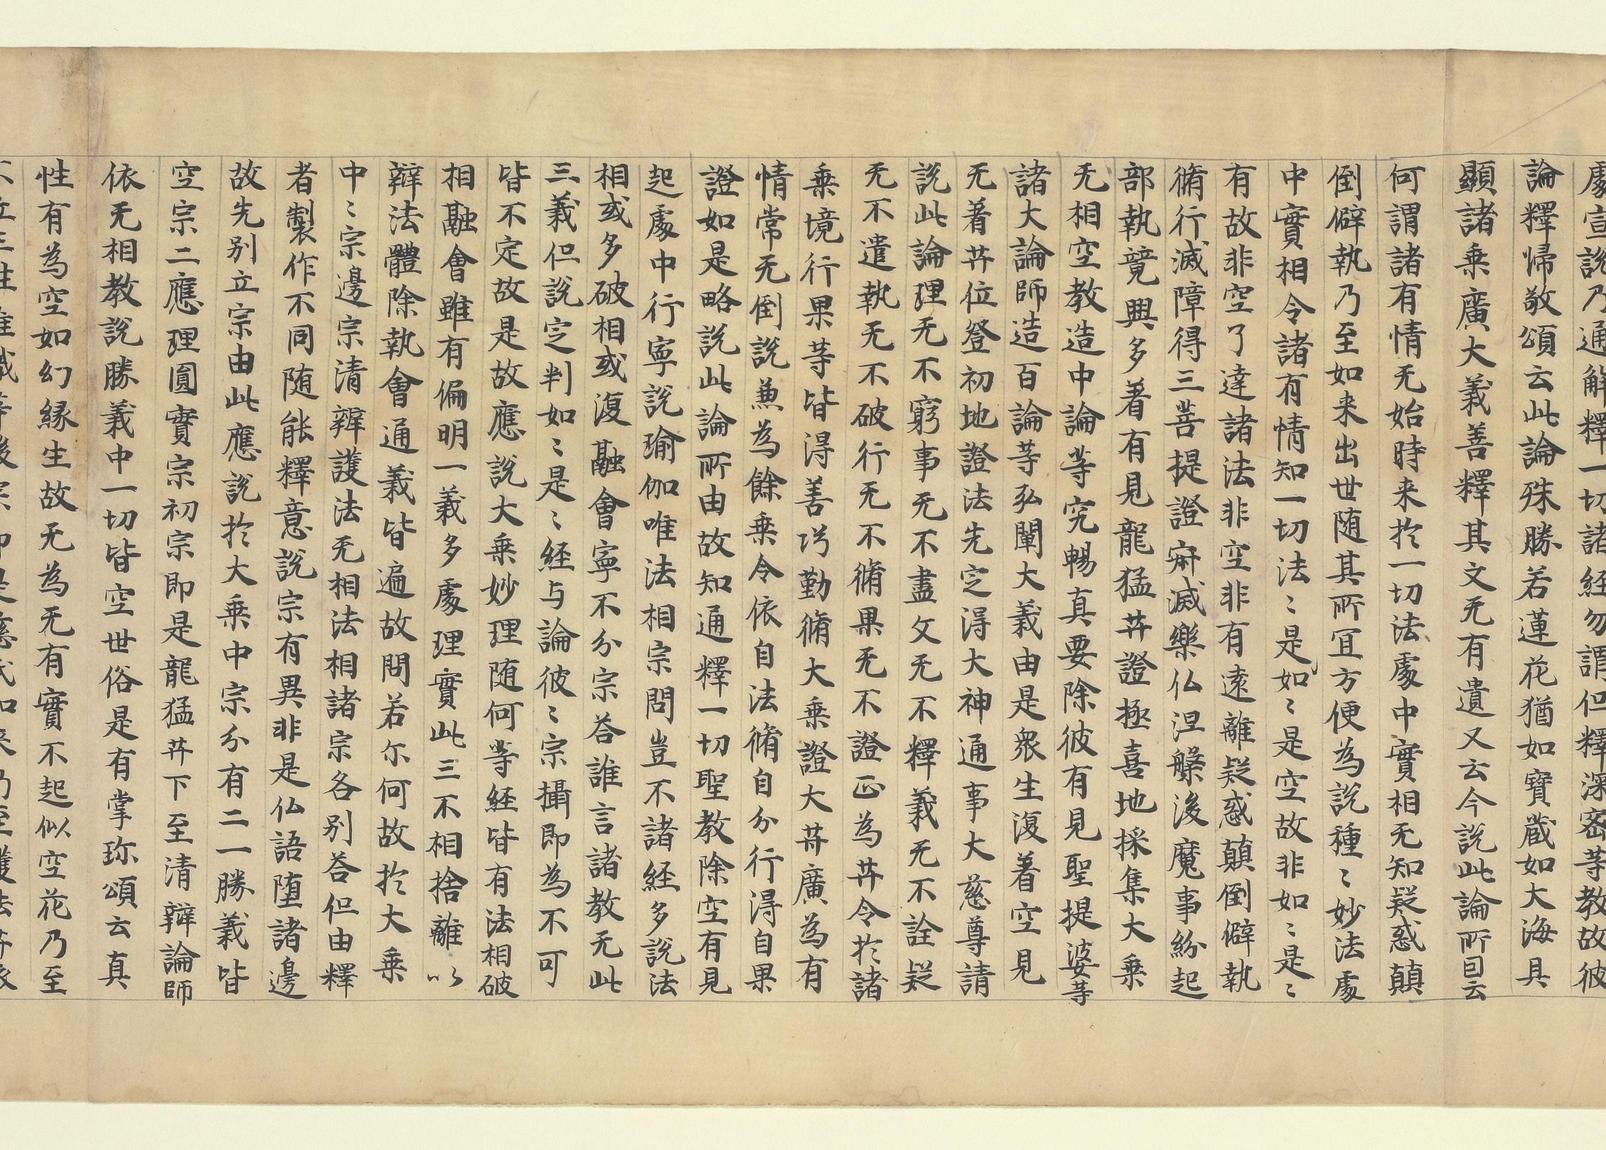 處宣說乃通解釋一切諸経勿謂但釋深密等教故彼
論釋帰敬頌云此論殊勝若蓮花猶如寶蔵如大海具
顯諸乗廣大義善釋其文无有遺又云今說此論所因云
何謂諸有情无始時来扵一切法處中實相无知疑惑顛
倒僻執乃至如来出世随其所冝方便為說種〻妙法處
中實相令諸有情知一切法〻是如〻是空故非如〻是〻
有故非空了達諸法非空非有遠離疑惑顛倒僻執
脩行滅障得三菩提證寂滅樂仏涅槃後魔事紛起
部執競興多著有見龍猛菩證極喜地採集大乗
无相空教造中論等究暢真要除彼有見聖提婆等
諸大論師造百論等弘闡大義由是衆生復着空見
无着菩位登初地證法先定得大神通事大慈尊請
說此論理无不窮事无不盡文无不釋義无不詮疑
无不遣執无不破行无不脩果无不證正為菩令扵諸
乗境行果等皆得善巧勤脩大乗證大菩廣為有
情常无倒說兼為餘乗令依自法脩自分行得自果
證如是略說此論所由故知通釋一切聖教除空有見
起處中行寧說瑜伽唯法相宗問豈不諸経多說法
相或多破相或復融會寧不分宗荅誰言諸教无此
三義但說定判如〻是〻経与論彼〻宗攝即為不可
皆不定故是故應說大乗妙理随何等経皆有法相破
相融會雖有偏明一義多處理實此三不相捨離以
辯法體除執會通義皆遍故問若尓何故扵大乗
中〻宗邊宗清辯護法无相法相諸宗各別荅但由釋
者製作不同随能釋意說宗有異非是仏語堕諸邊
故先別立宗由此應說扵大乗中宗分有二一勝義皆
空宗二應理圓實宗初宗即是龍猛菩下至清辯論師
依无相教說勝義中一切皆空世俗是有掌珎頌云真
性有為空如幻縁生故无為无有實不起似空花乃至